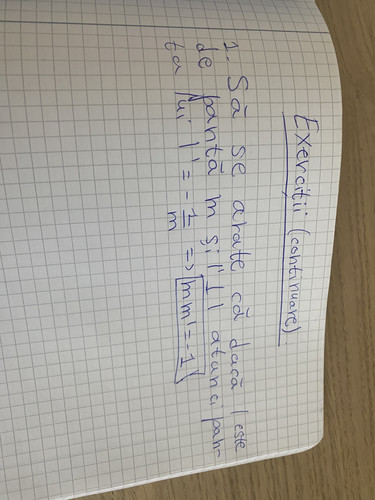 Exerciții (continuare)
1. Să se arate că dacă l este
de pantă m și l' ⊥ l atunci pan-
ta lui l' = -1/m => mm' = -1